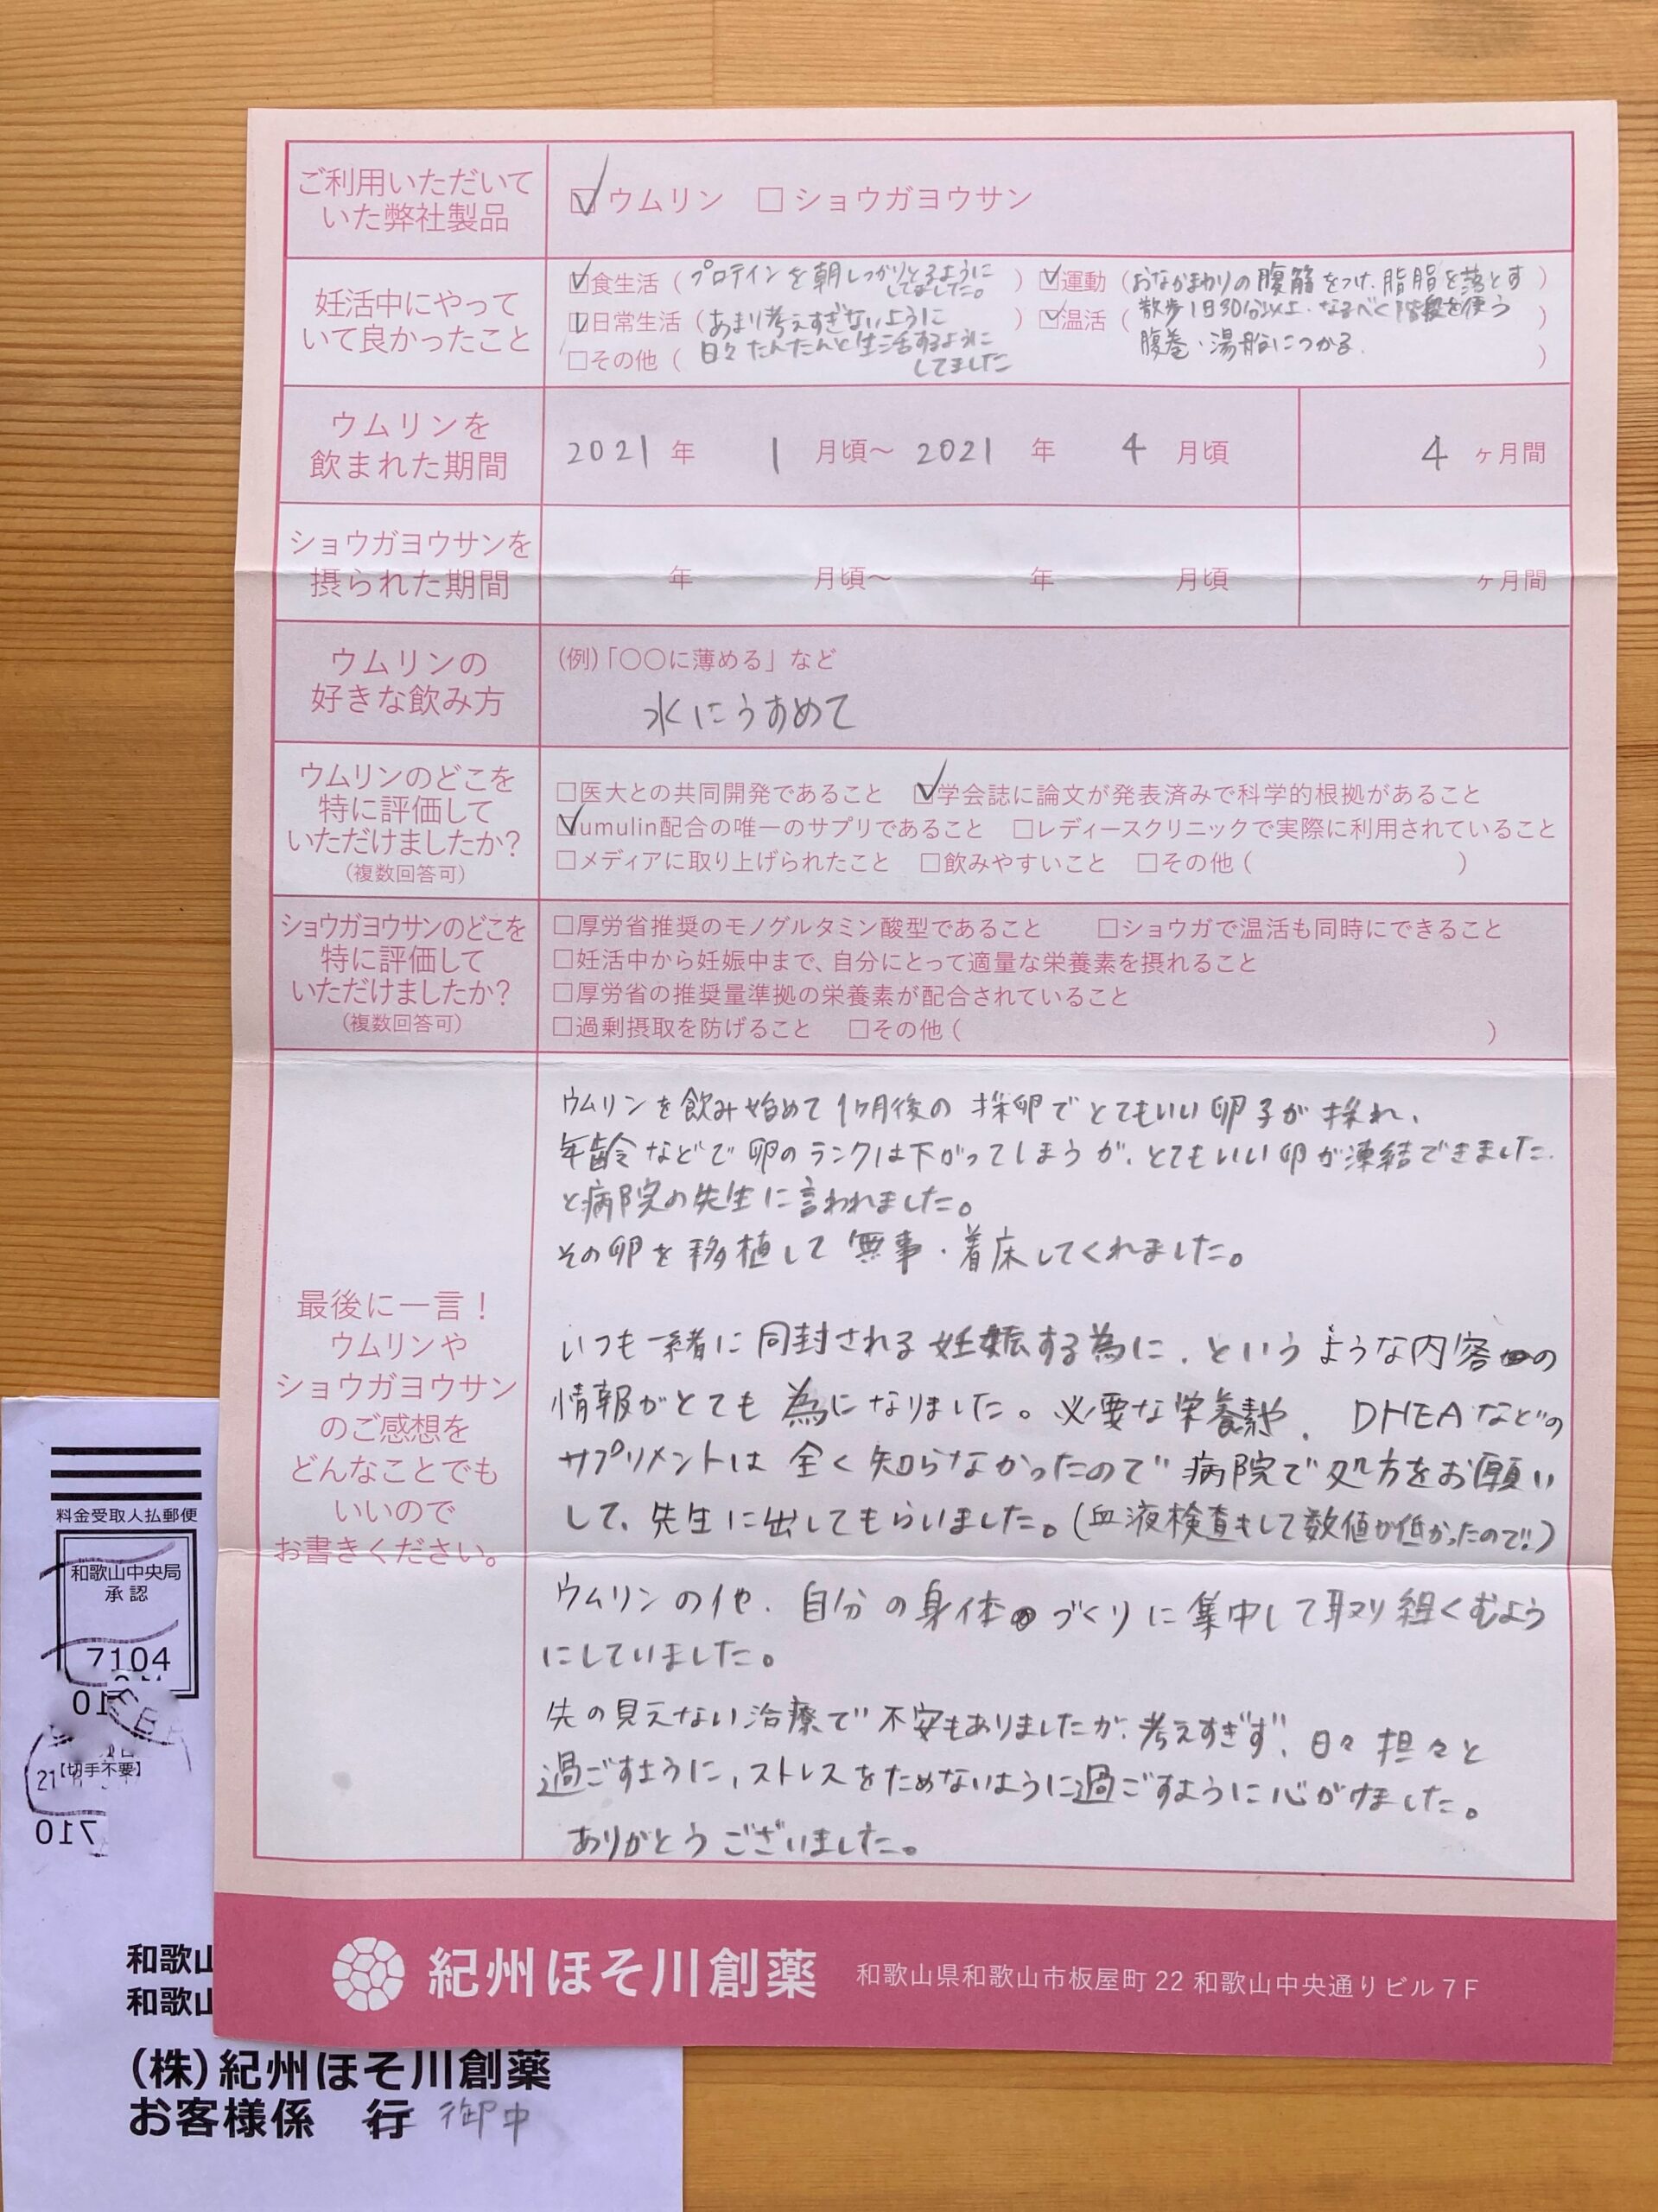 ご利用いただいて
いた弊社製品
☑ウムリン □ショウガヨウサン
妊活中にやって
いて良かったこと
☑食生活(プロテインを朝しっかりとるように
してました。)
☑運動(おなかまわりの腹筋をつけ、脂肪を落とす
散歩1日30分以上・なるべく階段を使う)
☑日常生活(あまり考えすぎないように
日々たんたんと生活するように
してました)
☑温活(腹巻・湯船につかる.)
□その他(
ウムリンを
飲まれた期間
2021年 1月頃〜2021年 4月頃 4ヶ月間
ショウガヨウサンを
摂られた期間
年 月頃〜 年 月頃 ヶ月間
ウムリンの
好きな飲み方
(例)「〇〇に薄める」など
水にうすめて
ウムリンのどこを
特に評価して
いただけましたか?
(複数回答可)
□医大との共同開発であること ☑学会誌に論文が発表済みで科学的根拠があること
☑umulin配合の唯一のサプリであること □レディースクリニックで実際に利用されていること
□メディアに取り上げられたこと □飲みやすいこと □その他( )
ショウガヨウサンのどこを
特に評価して
いただけましたか?
(複数回答可)
□厚労省推奨のモノグルタミン酸型であること □ショウガで温活も同時にできること
□妊活中から妊娠中まで、自分にとって適量な栄養素を摂れること
□厚労省の推奨量準拠の栄養素が配合されていること
□過剰摂取を防げること □その他( )
最後に一言!
ウムリンや
ショウガヨウサン
のご感想を
どんなことでも
いいので
お書きください。
ウムリンを飲み始めて1ヶ月後の採卵でとてもいい卵子が採れ、
年齢などで卵のランクは下がってしまうが、とてもいい卵が凍結できました.
と病院の先生に言われました。
その卵を移植して無事・着床してくれました。
いつも一緒に同封される妊娠する為に、というような内容の
情報がとても為になりました。必要な栄養素や、DHEAなどの
サプリメントは全く知らなかったので病院で処方をお願い
して、先生に出してもらいました。(血液検査もして数値が低かったので!!)
ウムリンの他、自分の身体づくりに集中して取り組くむよう
にしていました。
先の見えない治療で不安もありましたが、考えすぎず、日々担々と
過ごすように、ストレスをためないように過ごすように心がけました。
ありがとうございました。
紀州ほそ川創薬 和歌山県和歌山市板屋町22 和歌山中央通りビル7F
料金受取人払郵便
和歌山中央局
承認
7104
【切手不要】
21
710
和歌山
和歌山
(株)紀州ほそ川創薬
お客様係 行 御中